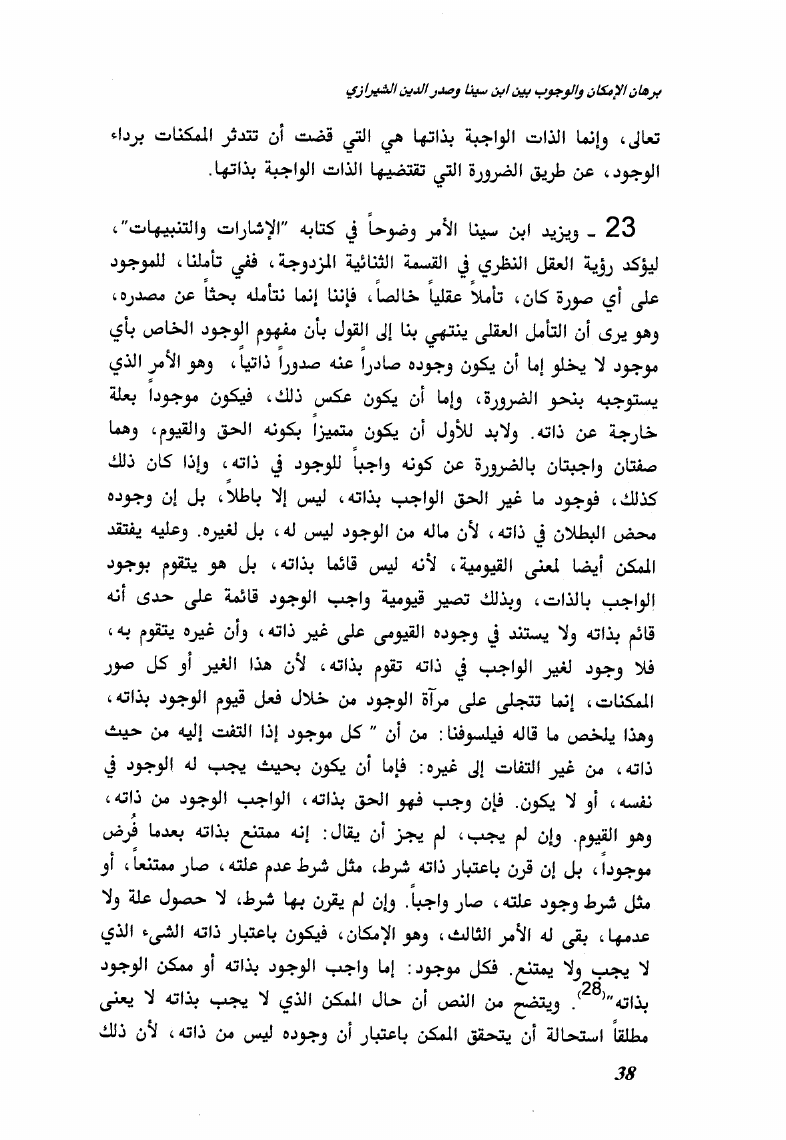 برهان الإمكان والوجوب بين ابن سينا وصدر الدين الشيرازي
تعالى، وإنما الذات الواجبة بذاتها هي التي قضت أن تتدثر الممكنات برداء
الوجود، عن طريق الضرورة التي تقتضيها الذات الواجبة بذاتها.
23 ـ ويزيد ابن سينا الأمر وضوحاً في كتابه "الإشارات والتنبيهات"،
ليؤكد رؤية العقل النظري في القسمة الثنائية المزدوجة، ففي تأملنا، للموجود
على أي صورة كان، تأملاً عقلياً خالصاً، فإننا إنما نتأمله بحثاً عن مصدره،
وهو يرى أن التأمل العقلى ينتهي بنا إلى القول بأن مفهوم الوجود الخاص بأي
موجود لا يخلو إما أن يكون وجوده صادراً عنه صدوراً ذاتياً، وهو الأمر الذي
يستوجبه بنحو الضرورة، وإما أن يكون عكس ذلك، فيكون موجوداً بعلة
خارجة عن ذاته. ولابد للأول أن يكون متميزاً بكونه الحق والقيوم، وهما
صفتان واجبتان بالضرورة عن كونه واجباً للوجود في ذاته، وإذا كان ذلك
كذلك، فوجود ما غير الحق الواجب بذاته، ليس إلا باطلاً، بل إن وجوده
محض البطلان في ذاته، لأن ماله من الوجود ليس له، بل لغيره. وعليه يفتقد
الممكن أيضا لمعنى القيومية، لأنه ليس قائما بذاته، بل هو يتقوم بوجود
الواجب بالذات، وبذلك تصير قيومية واجب الوجود قائمة على حدى أنه
قائم بذاته ولا يستند في وجوده القيومى على غير ذاته، وأن غيره يتقوم به،
فلا وجود لغير الواجب في ذاته تقوم بذاته، لأن هذا الغير أو كل صور
الممكنات، إنما تتجلى على مرآة الوجود من خلال فعل قيوم الوجود بذاته،
وهذا يلخص ما قاله فيلسوفنا: من أن " كل موجود إذا التفت إليه من حيث
ذاته، من غير التفات إلى غيره: فإما أن يكون بحيث يجب له الوجود في
نفسه، أو لا يكون. فإن وجب فهو الحق بذاته، الواجب الوجود من ذاته،
وهو القيوم. وإن لم يجب، لم يجز أن يقال: إنه ممتنع بذاته بعدما فُرض
موجوداً، بل إن قرن باعتبار ذاته شرط، مثل شرط عدم علته، صار ممتنعاً، أو
مثل شرط وجود علته، صار واجباً. وإن لم يقرن بها شرط، لا حصول علة ولا
عدمها، بقى له الأمر الثالث، وهو الإمكان، فيكون باعتبار ذاته الشىء الذي
لا يجب ولا يمتنع. فكل موجود: إما واجب الوجود بذاته أو ممكن الوجود
بذاته"(28). ويتضح من النص أن حال الممكن الذي لا يجب بذاته لا يعنى
مطلقاً استحالة أن يتحقق الممكن باعتبار أن وجوده ليس من ذاته، لأن ذلك
38